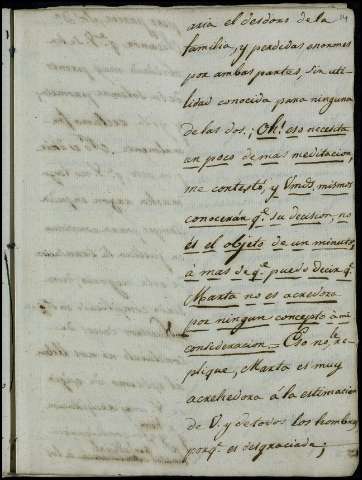 aria el desdoro de la 24
familia, y perdidas enormes
por ambas partes, sin uti-
lidad conocida para ninguna
de las dos; Oh! eso necesita
un poco de mas meditacion,
me contestó, y Vmds. mismos
conoceran q.e su decision, no
és el objeto de un minuto,
á mas de q.e puedo decir q.e
Marta no es acredora
por ningun concepto á mi
consideracion = Eso no, le re-
plique, Marta es muy
acrehedora á la estimacion
de V. y de todos los hombres
porq.e es desgraciada;